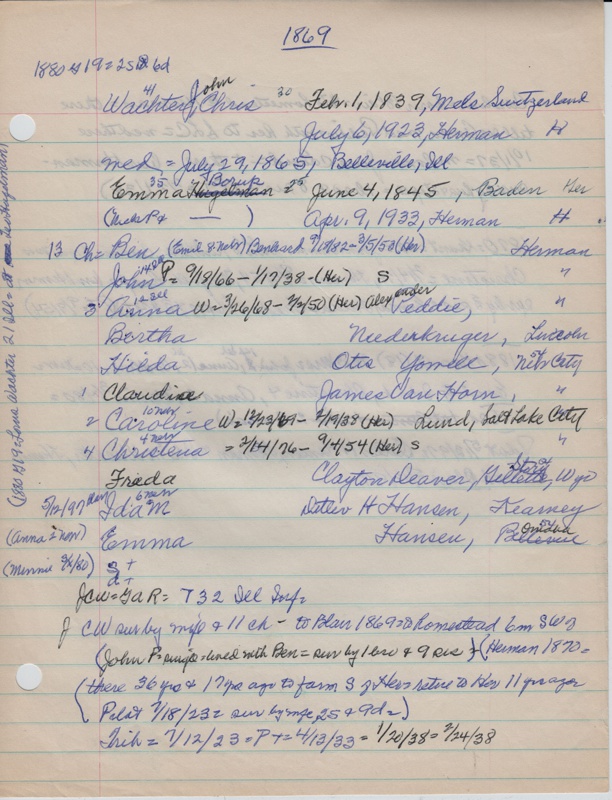 1869
1880 19 = 2S 6d
Wachter, John Chris 41 30 Feb. 1, 1839, Mels Switzerland
July 6, 1923, Herman H
med = July 29, 1865, Belleville, Ill
Emma 35 Hugelman Borup = 25 June 4, 1845, Baden Ger
( — ) Apr. 9, 1933, Herman H
13 Ch = Ben (Emil & Nebr) Bernhard 9/10/82 = 3/5/58 (Her) Herman
John P = 9/18/66 - 1/17/38 - (Her) S "
3 Anna W = 3/26/68 - 3/2/50 (Her) Alexander Peddie, "
Bertha Niederkruger, Lincoln
Hilda Otis Yowell, Neb City
Claudine James Van Horn, "
2 Caroline 10 W = 12/23/69 - 2/19/38 (Her) Lund, Salt Lake City
4 Christena = 2/14/76 - 9/4/54 (Her) S "
Frieda Clayton Deaver, Gillette, Wyo
5/12/97 Ida M Detlev H Hansen, Kearney
(Anna = ) Emma Hansen, Bellevue Omaha
(Minnie 9/2/80) S +
d +
JCW = GAR = T 32 Ill Inf =
J CW sur by mfe & 11 ch - to Blair 1869 = to Homestead 6m SW
(John P = single = lived with Ben = sur by 1 bro & 9 sis) (Herman 1870 =
(there 36 yrs & 17 yrs ago to farm S of Her = retire to Her 11 yrs ago
(Pilot 7/18/23 = sur by mfe, 2S & 9d =)
Trib = 7/12/23 = P + = 4/13/33 = 1/20/38 = 2/24/38